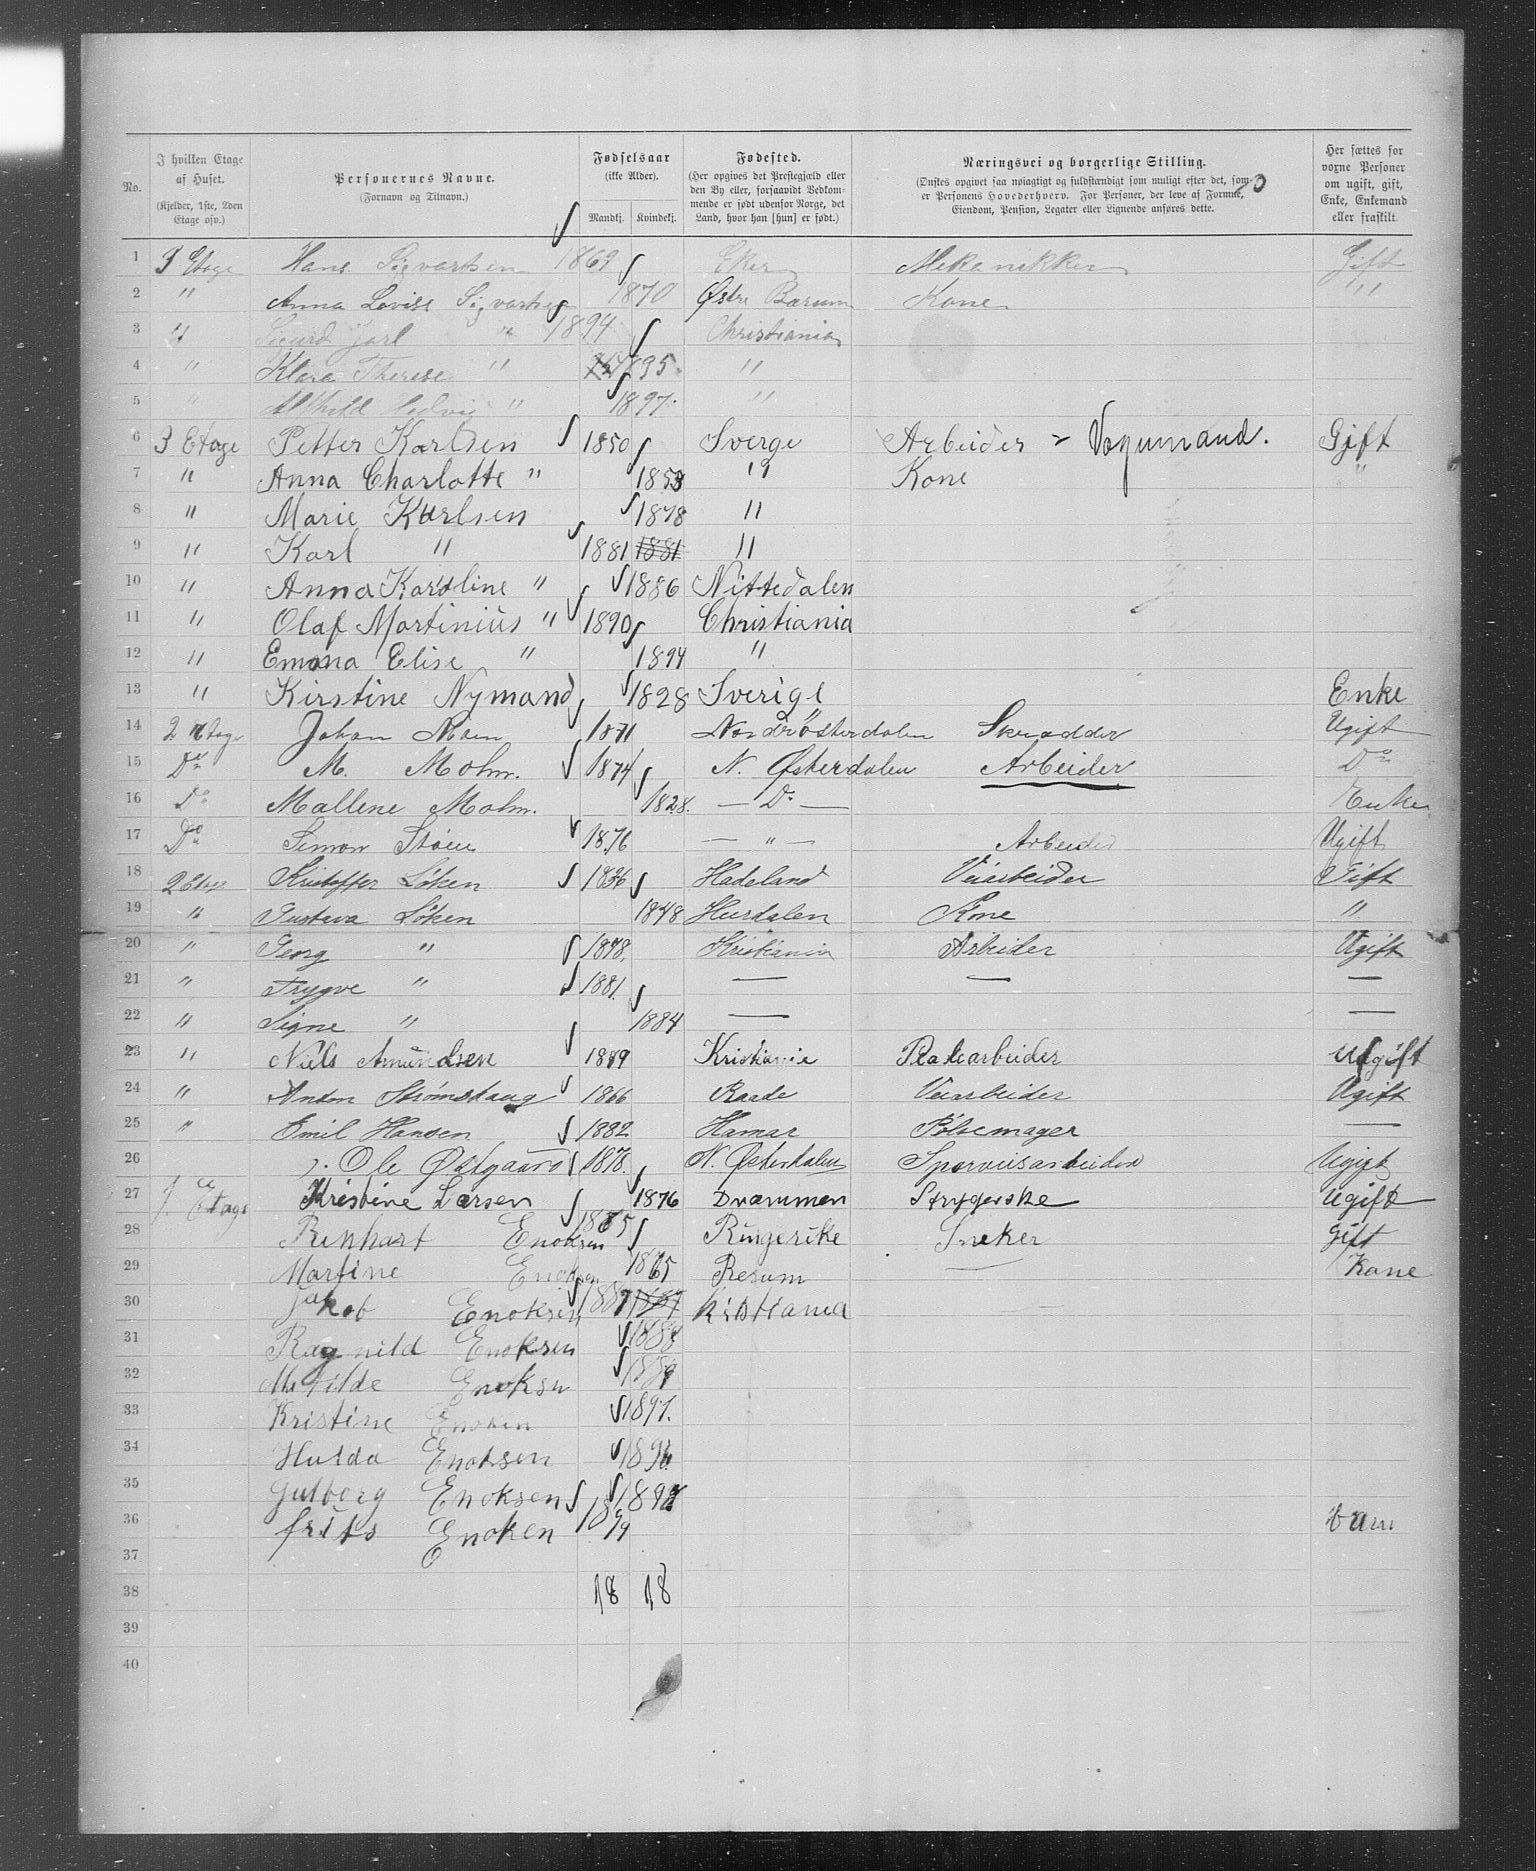 No.
I hvilken Etage af Huset. (Kjelder, 1ste, 2den Etage osv.)
Personernes Navne. (Fornavn og Tilnavn.)
Fødselsaar (ikke Alder). Mandkj. Kvindekj.
Fødested. (Her opgives det Prestegjæld eller den By eller, forsaavidt Vedkommende er født udenfor Norge, det Land, hvor han [hun] er født.)
Næringsvei og borgerlige Stilling. (Ønskes opgivet saa nøiagtigt og fuldstændigt som muligt efter det, som er Personens Hovederhverv. For Personer, der leve af Formue, Eiendom, Pension, Legater eller Lignende anføres dette.
Her sættes for voxne Personer om ugift, gift, Enke, Enkemand eller fraskilt.
1 3 Etage Hans Sigvartsen 1869 Eker Mekanikker Gift
2 " Anna Lovise Sigvartsen 1870 Østre Bærum Kone "
3 " Sigurd Jarl " 1894 Christiania
4 " Klara Therese " 1895 "
5 " Alfhild Hedvig " 1897 "
6 3 Etage Petter Karlsen 1850 Sverge Arbeider - Vognmand. Gift
7 " Anna Charlotte " 1853 " Kone "
8 " Marie Karlsen 1878 "
9 " Karl " 1881 1881 "
10 " Anna Karoline " 1886 Nittedalen
11 " Olaf Martinius " 1890 Christiania
12 " Emma Elise " 1894 "
13 " Kirstine Nymand 1828 Sverige Enke
14 2 Etage Johan Moen 1871 Nordre Østerdalen Skrædder Ugift
15 Do M. Mohn. 1874 N. Østerdalen Arbeider Do
16 Do Mallene Mohn. 1828. — Do — Enke
17 Do Simon Støen 1876 — " — Arbeider Ugift
18 2 Etage Kristoffer Løken 1836 Hadeland Veiarbeider Gift
19 " Gustava Løken 1848 Hurdalen Kone "
20 " Georg " 1878. Kristiania Arbeider Ugift
21 " Trygve " 1881. — — —
22 " Signe " 1884 — —
23 " Niels Amundsen 1889 Kristiania Platearbeider Ugift
24 " Anton Strømshaug 1866 Raade Veiarbeider Ugift
25 " Emil Hansen 1882 Hamar Pølsemager —
26 Ole Østgaard 1878. N. Østerdalen Sporveisarbeider Ugift
27 1. Etage Kristine Larsen 1876 Drammen Strygerske Ugift
28 Rinhart Enoksen 1865 Ringerike Sneker gift
29 Martine Enoksen 1865 Resum Kone
30 Jakob Enoksen 1887 1887 Kristiania
31 Ragnild Enoksen 1888
32 Matilde Enoksen 1889
33 Kristine Enoksen 1891.
34 Hulda Enoksen 1896
35 Gulborg Enoksen 1897
36 frits Enoken 1899 barn
37
38 18 18
39
40